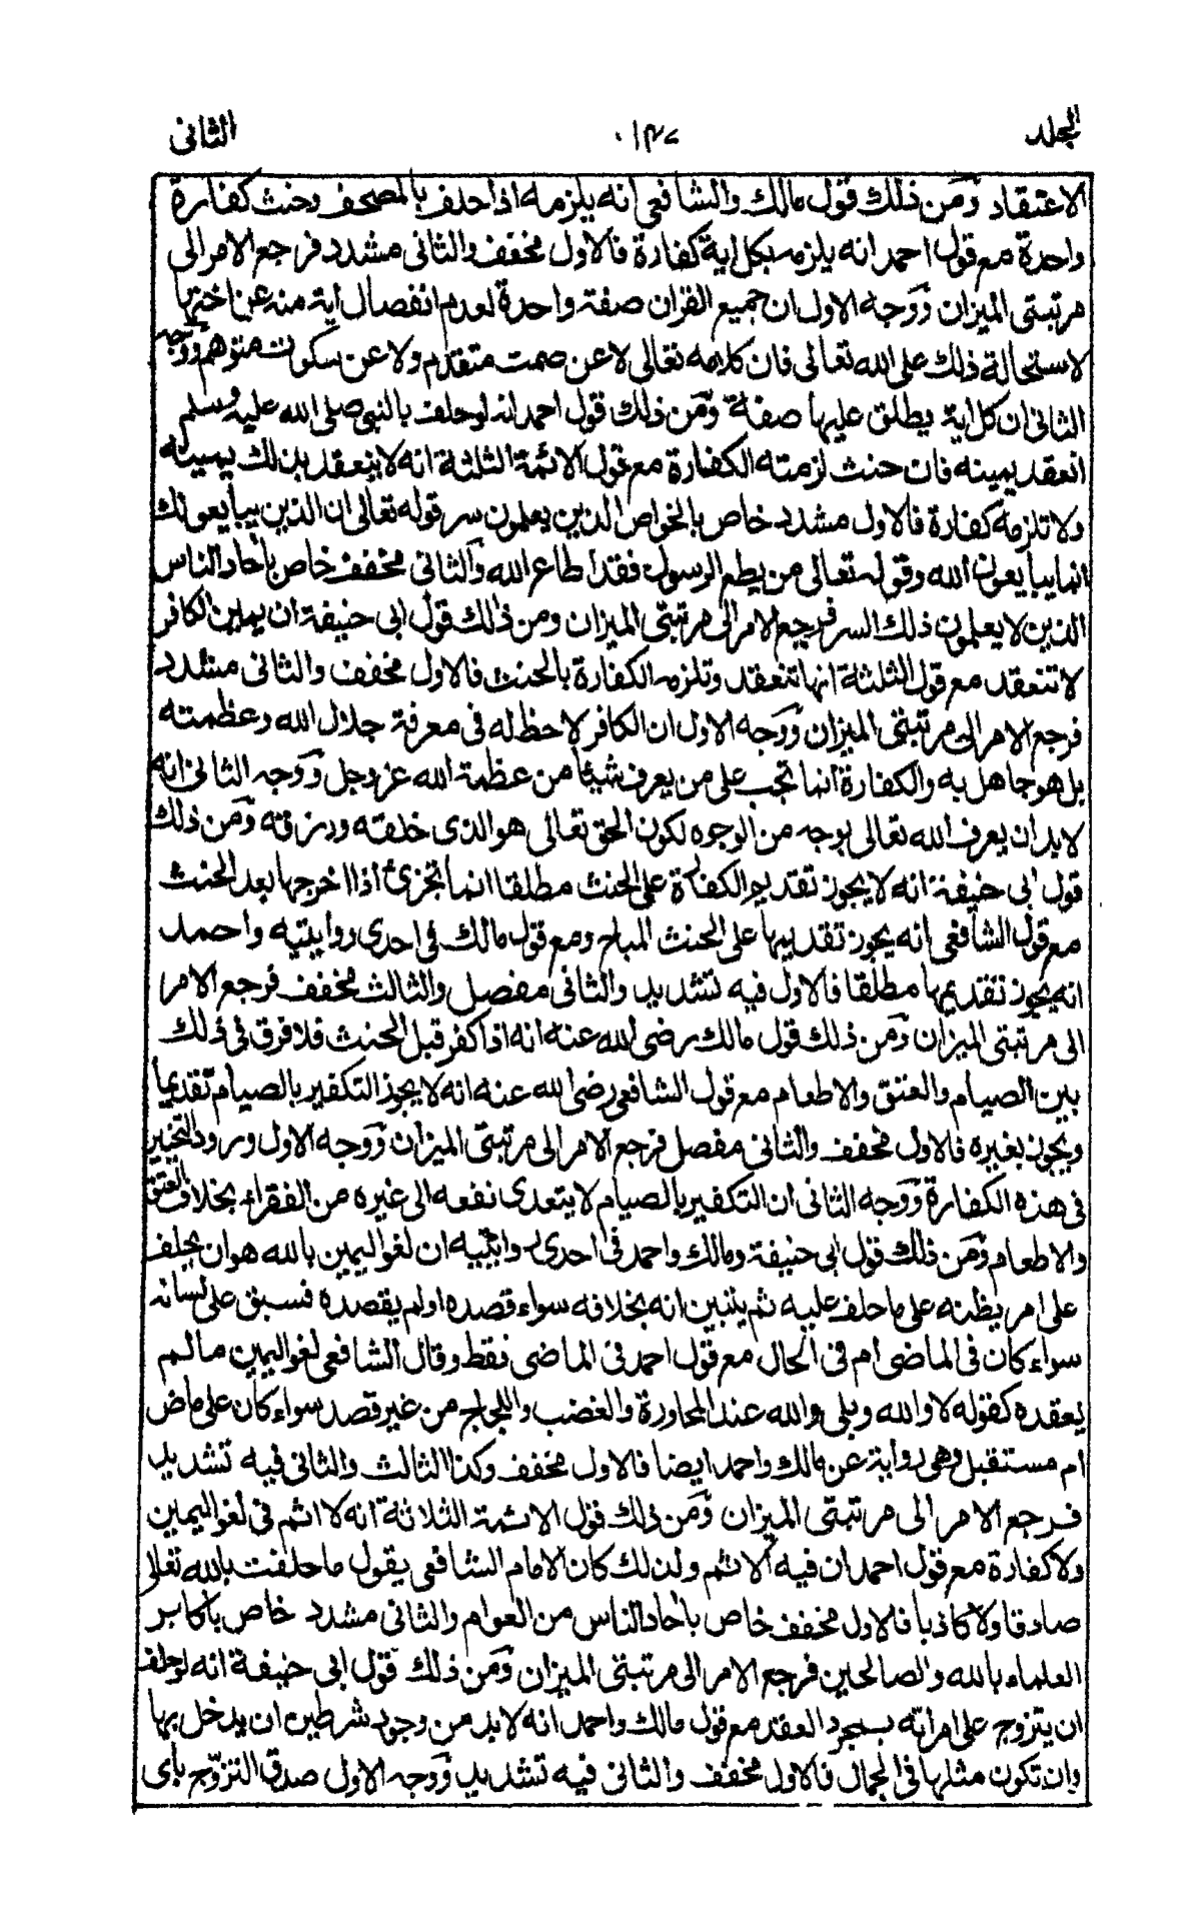 المجلد ١٣٧ الثانى
الاعتقاد ومن ذلك قول مالك والشافعى انه يلزمه اذا حلف بالمصحف وحنث كفارة
واحدة مع قول احمد انه يلزمه بكل اية كفارة فالاول مخفف والثانى مشدد فرجع الامر الى
مرتبتى الميزان ووجه الاول ان جميع القران صفة واحدة لعدم انفصال اية منه عن اختها
لاستحالة ذلك على الله تعالى فان كلامه تعالى لا عن صمت متقدم ولا عن سكوت متوهم ووجه
الثانى ان كل اية يطلق عليها صفة ومن ذلك قول احمد انه لو حلف بالنبى صلى الله عليه وسلم
انعقد يمينه فان حنث لزمته الكفارة مع قول الائمة الثلثة انه لا ينعقد بذلك يمينه
ولا تلزمه كفارة فالاول مشدد خاص بالخواص الذين يعلمون سر قوله تعالى ان الذين يبايعونك
انما يبايعون الله وقوله تعالى من يطع الرسول فقد اطاع الله والثانى مخفف خاص باحاد الناس
الذين لا يعلمون ذلك السر فرجع الامر الى مرتبتى الميزان ومن ذلك قول ابى حنيفة ان يمين الكافر
لا تنعقد مع قول الثلثة انها تنعقد وتلزمه الكفارة بالحنث فالاول مخفف والثانى مشدد
فرجع الامر الى مرتبتى الميزان ووجه الاول ان الكافر لا حظ له فى معرفة جلال الله وعظمته
بل هو جاهل به والكفارة انما تجب على من يعرف شيئا من عظمة الله عز وجل ووجه الثانى انه
لا بد ان يعرف الله تعالى بوجه من الوجوه لكون الحق تعالى هو الذى خلقه ورزقه ومن ذلك
قول ابى حنيفة انه لا يجوز تقديم الكفارة على الحنث مطلقا انما تجزئ اذا اخرجها بعد الحنث
مع قول الشافعى انه يجوز تقديمها على الحنث المباح ومع قول مالك فى احدى روايتيه واحمد
انه يجوز تقديمها مطلقا فالاول فيه تشديد والثانى مفصل والثالث مخفف فرجع الامر
الى مرتبتى الميزان ومن ذلك قول مالك رضى الله عنه انه اذا كفر قبل الحنث فلا فرق فى ذلك
بين الصيام والعتق والاطعام مع قول الشافعى رضى الله عنه انه لا يجوز التكفير بالصيام تقديما
ويجوز بغيره فالاول مخفف والثانى مفصل فرجع الامر الى مرتبتى الميزان ووجه الاول ورود التخيير
فى هذه الكفارة ووجه الثانى ان التكفير بالصيام لا يتعدى نفعه الى غيره من الفقراء بخلاف العتق
والاطعام ومن ذلك قول ابى حنيفة ومالك واحمد فى احدى روايتيه ان لغو اليمين بالله هو ان يحلف
على امر يظنه على ما حلف عليه ثم يتبين انه بخلافه سواء قصده او لم يقصده فسبق على لسانه
سواء كان فى الماضى ام فى الحال مع قول احمد فى الماضى فقط وقال الشافعى لغو اليمين ما لم
يعقده كقوله لا والله وبلى والله عند المحاورة والغضب واللجاج من غير قصد سواء كان على ماض
ام مستقبل وهى رواية عن مالك واحمد ايضا فالاول مخفف وكذا الثالث والثانى فيه تشديد
فرجع الامر الى مرتبتى الميزان ومن ذلك قول الائمة الثلاثة انه لا اثم فى لغو اليمين
ولا كفارة مع قول احمد ان فيه الاثم ولذلك كان الامام الشافعى يقول ما حلفت بالله تعالى
صادقا ولا كاذبا فالاول مخفف خاص باحاد الناس من العوام والثانى مشدد خاص باكابر
العلماء بالله والصالحين فرجع الامر الى مرتبتى الميزان ومن ذلك قول ابى حنيفة انه لو حلف
ان يتزوج على امراته بمجرد العقد مع قول مالك واحمد انه لا بد من وجود شرطين ان يدخل بها
وان تكون مثلها فى الجمال فالاول مخفف والثانى فيه تشديد ووجه الاول صدق التزوج باى